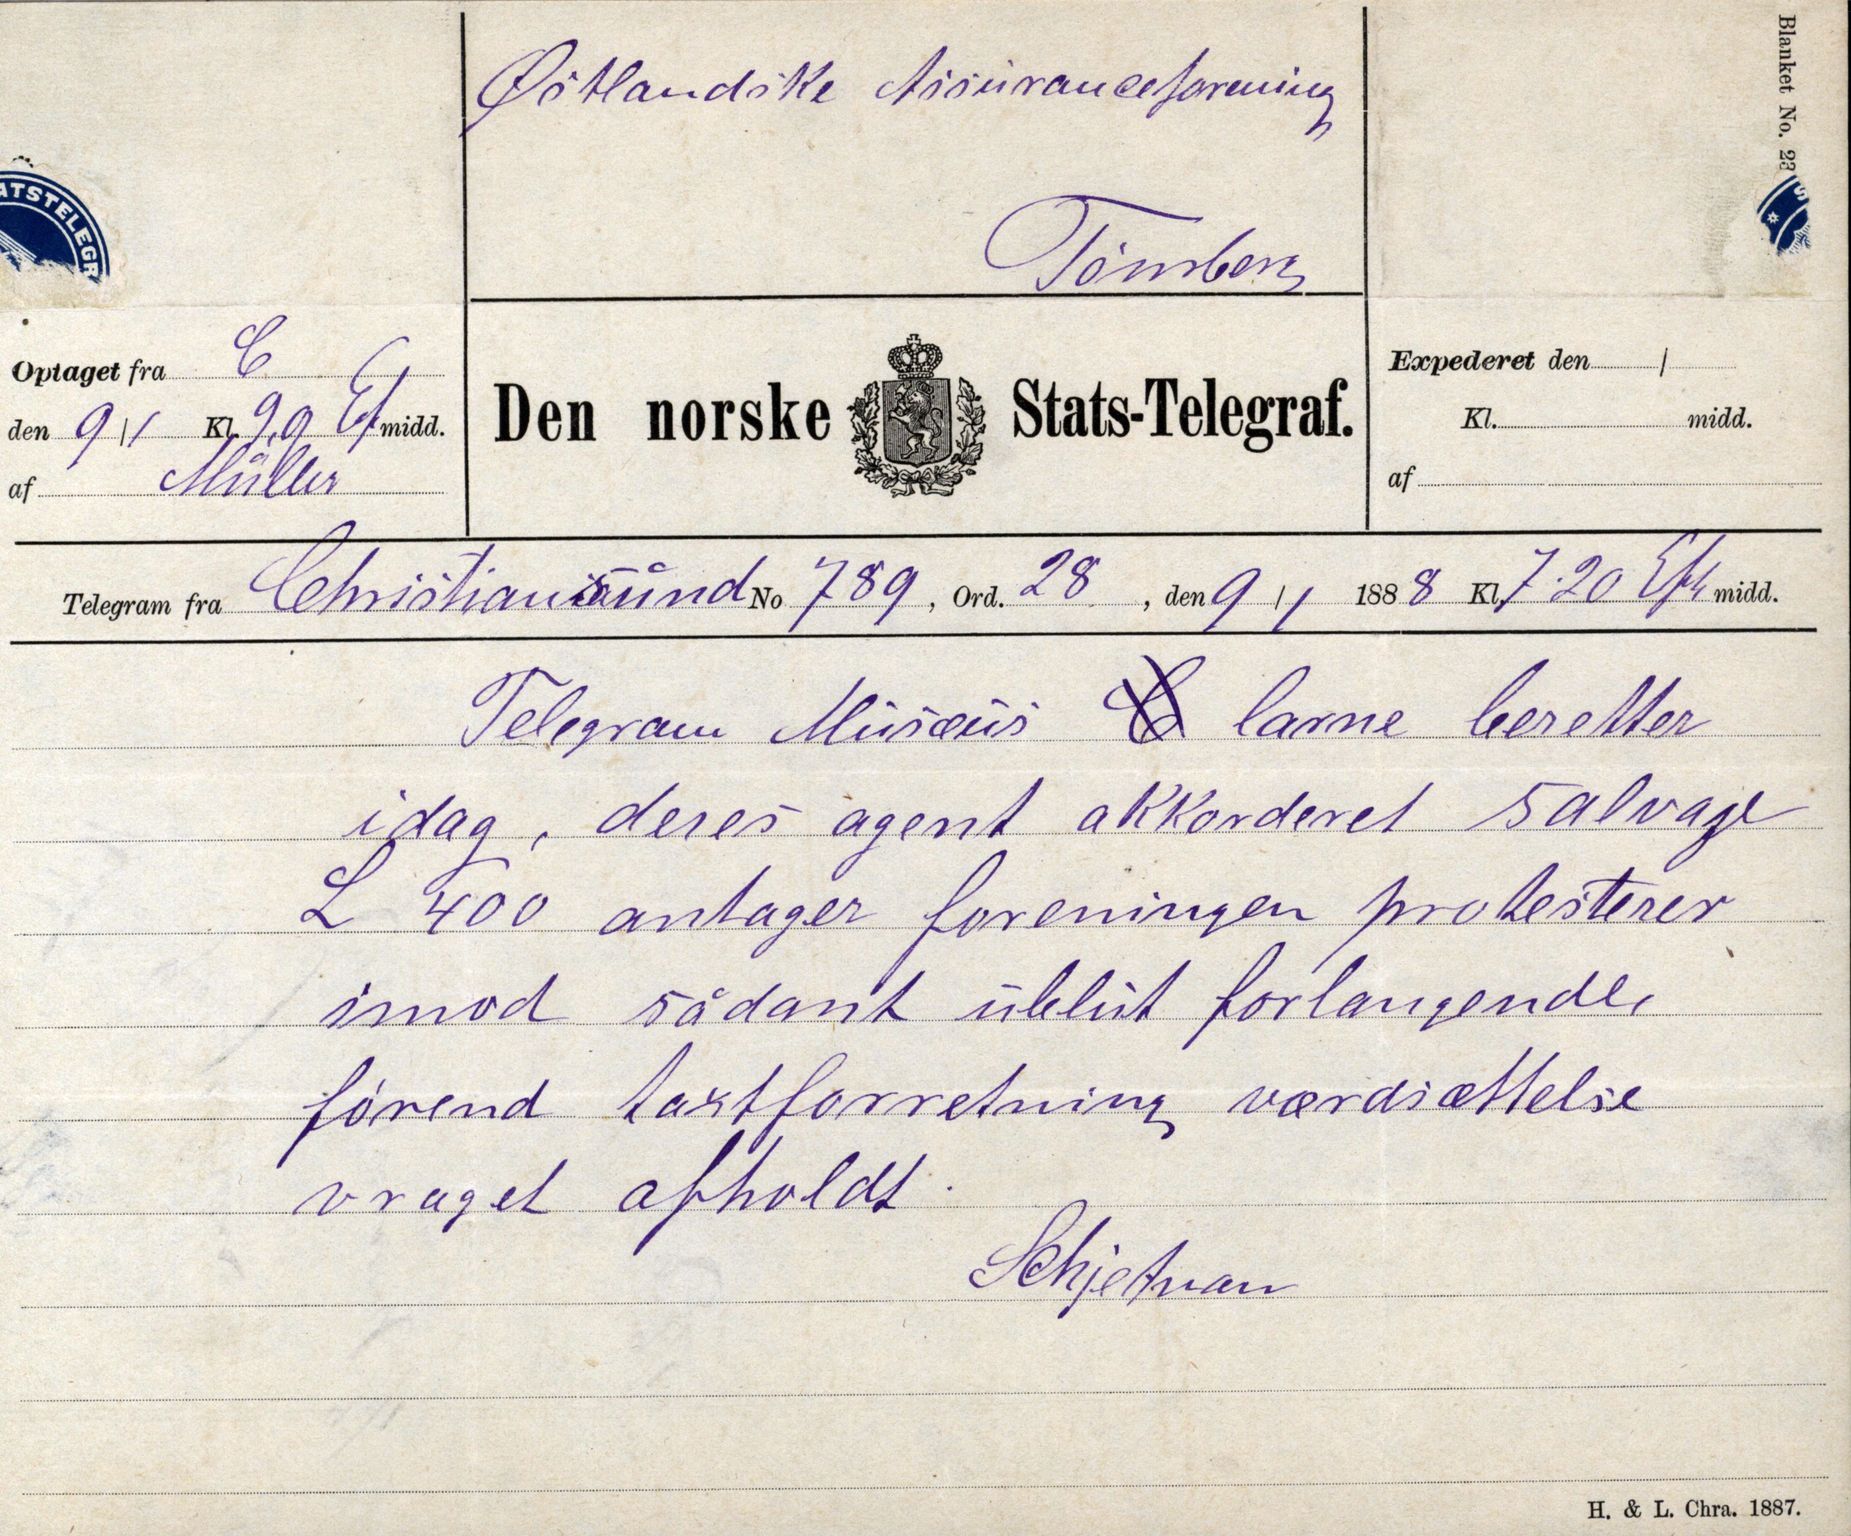 Østlandske Assuranceforening
Tönsberg
Blanket No. 23
ATSTELEGR
S
Optaget fra C
den 9/1 Kl. 9,9 Ef midd.
af Müller
Den norske Stats-Telegraf.
Expederet den /
Kl. midd.
af
Telegram fra Christiansund No 789, Ord. 28, den 9/1 1888 Kl. 7.20 Eft midd.
Telegram Musæus larne beretter
idag, deres agent akkorderet salvage
£ 400 antager foreningen protesterer
imod sådant ublut forlangende,
förend taxtforretning værdsættelse
vraget afholdt.
Schjetnan
H. & L. Chra. 1887.